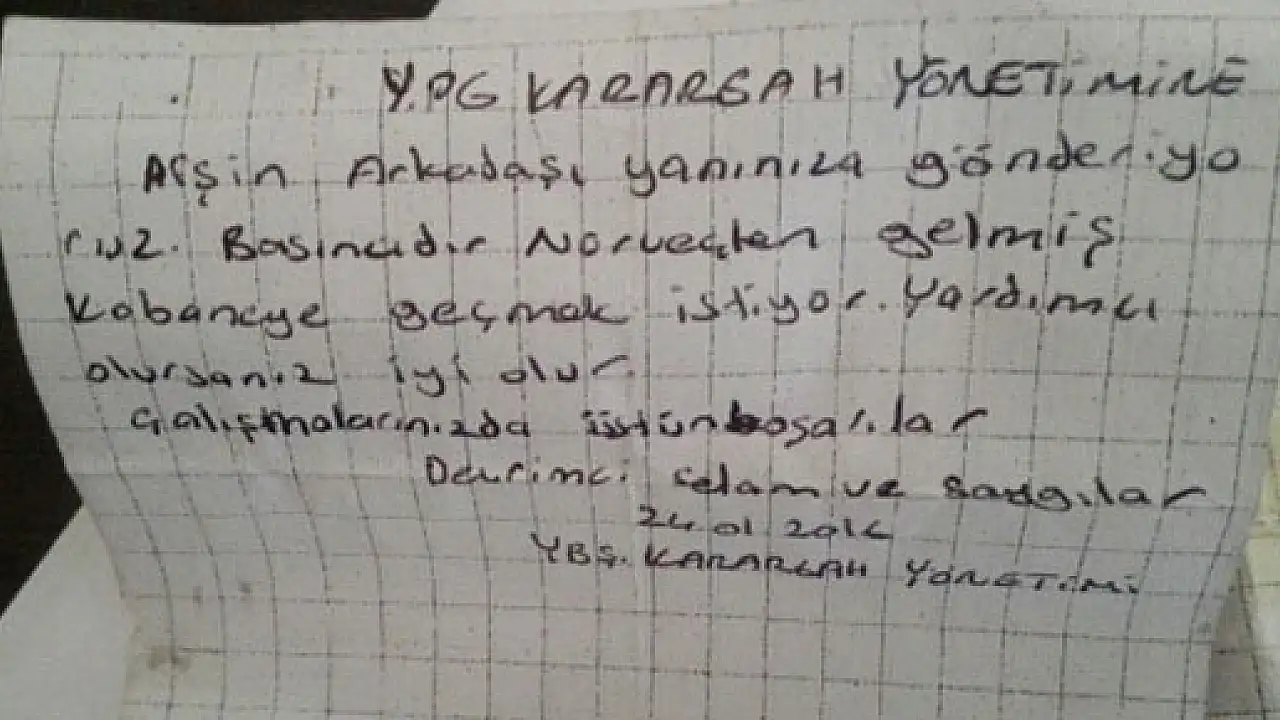 Y.PG KARARGAH YÖNETiMiNE
Afşin Arkadaşı yanınıza gönderiyo
ruz. Basıncıdır Norveçten gelmiş
Kobaneye geçmek istiyor. Yardımcı
olursanız iyi olur
Çalışmalarınızda üstün boşalılar
Devrimci selam ve saygılar
24 01 2016
YBŞ. KARARGAH YÖNETiMi